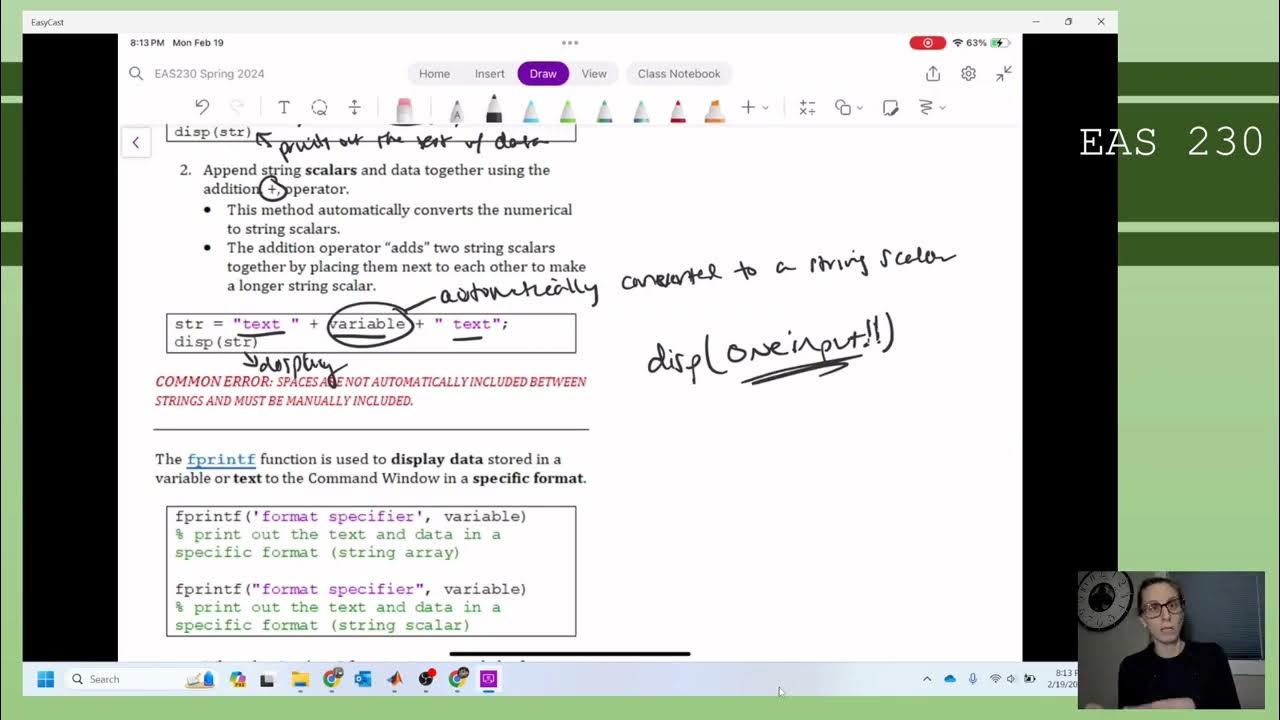 EasyCast
8:13 PM Mon Feb 19
63%
EAS230 Spring 2024
Home Insert Draw View Class Notebook
EAS 230
disp(str)
print out the text of data
2. Append string scalars and data together using the
addition, +, operator.
• This method automatically converts the numerical
to string scalars.
• The addition operator “adds” two string scalars
together by placing them next to each other to make
a longer string scalar.
automatically converted to a string scalar
str = "text " + variable + " text";
disp(str)
display
disp(one input!!)
COMMON ERROR: SPACES ARE NOT AUTOMATICALLY INCLUDED BETWEEN
STRINGS AND MUST BE MANUALLY INCLUDED.
The fprintf function is used to display data stored in a
variable or text to the Command Window in a specific format.
fprintf('format specifier', variable)
% print out the text and data in a
specific format (string array)
fprintf("format specifier", variable)
% print out the text and data in a
specific format (string scalar)
Search
8:13 P